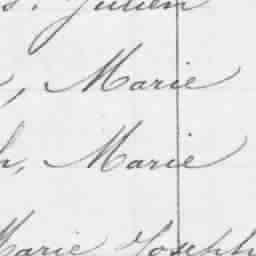 s. Julien
, Marie
h, Marie
Marie Joseph